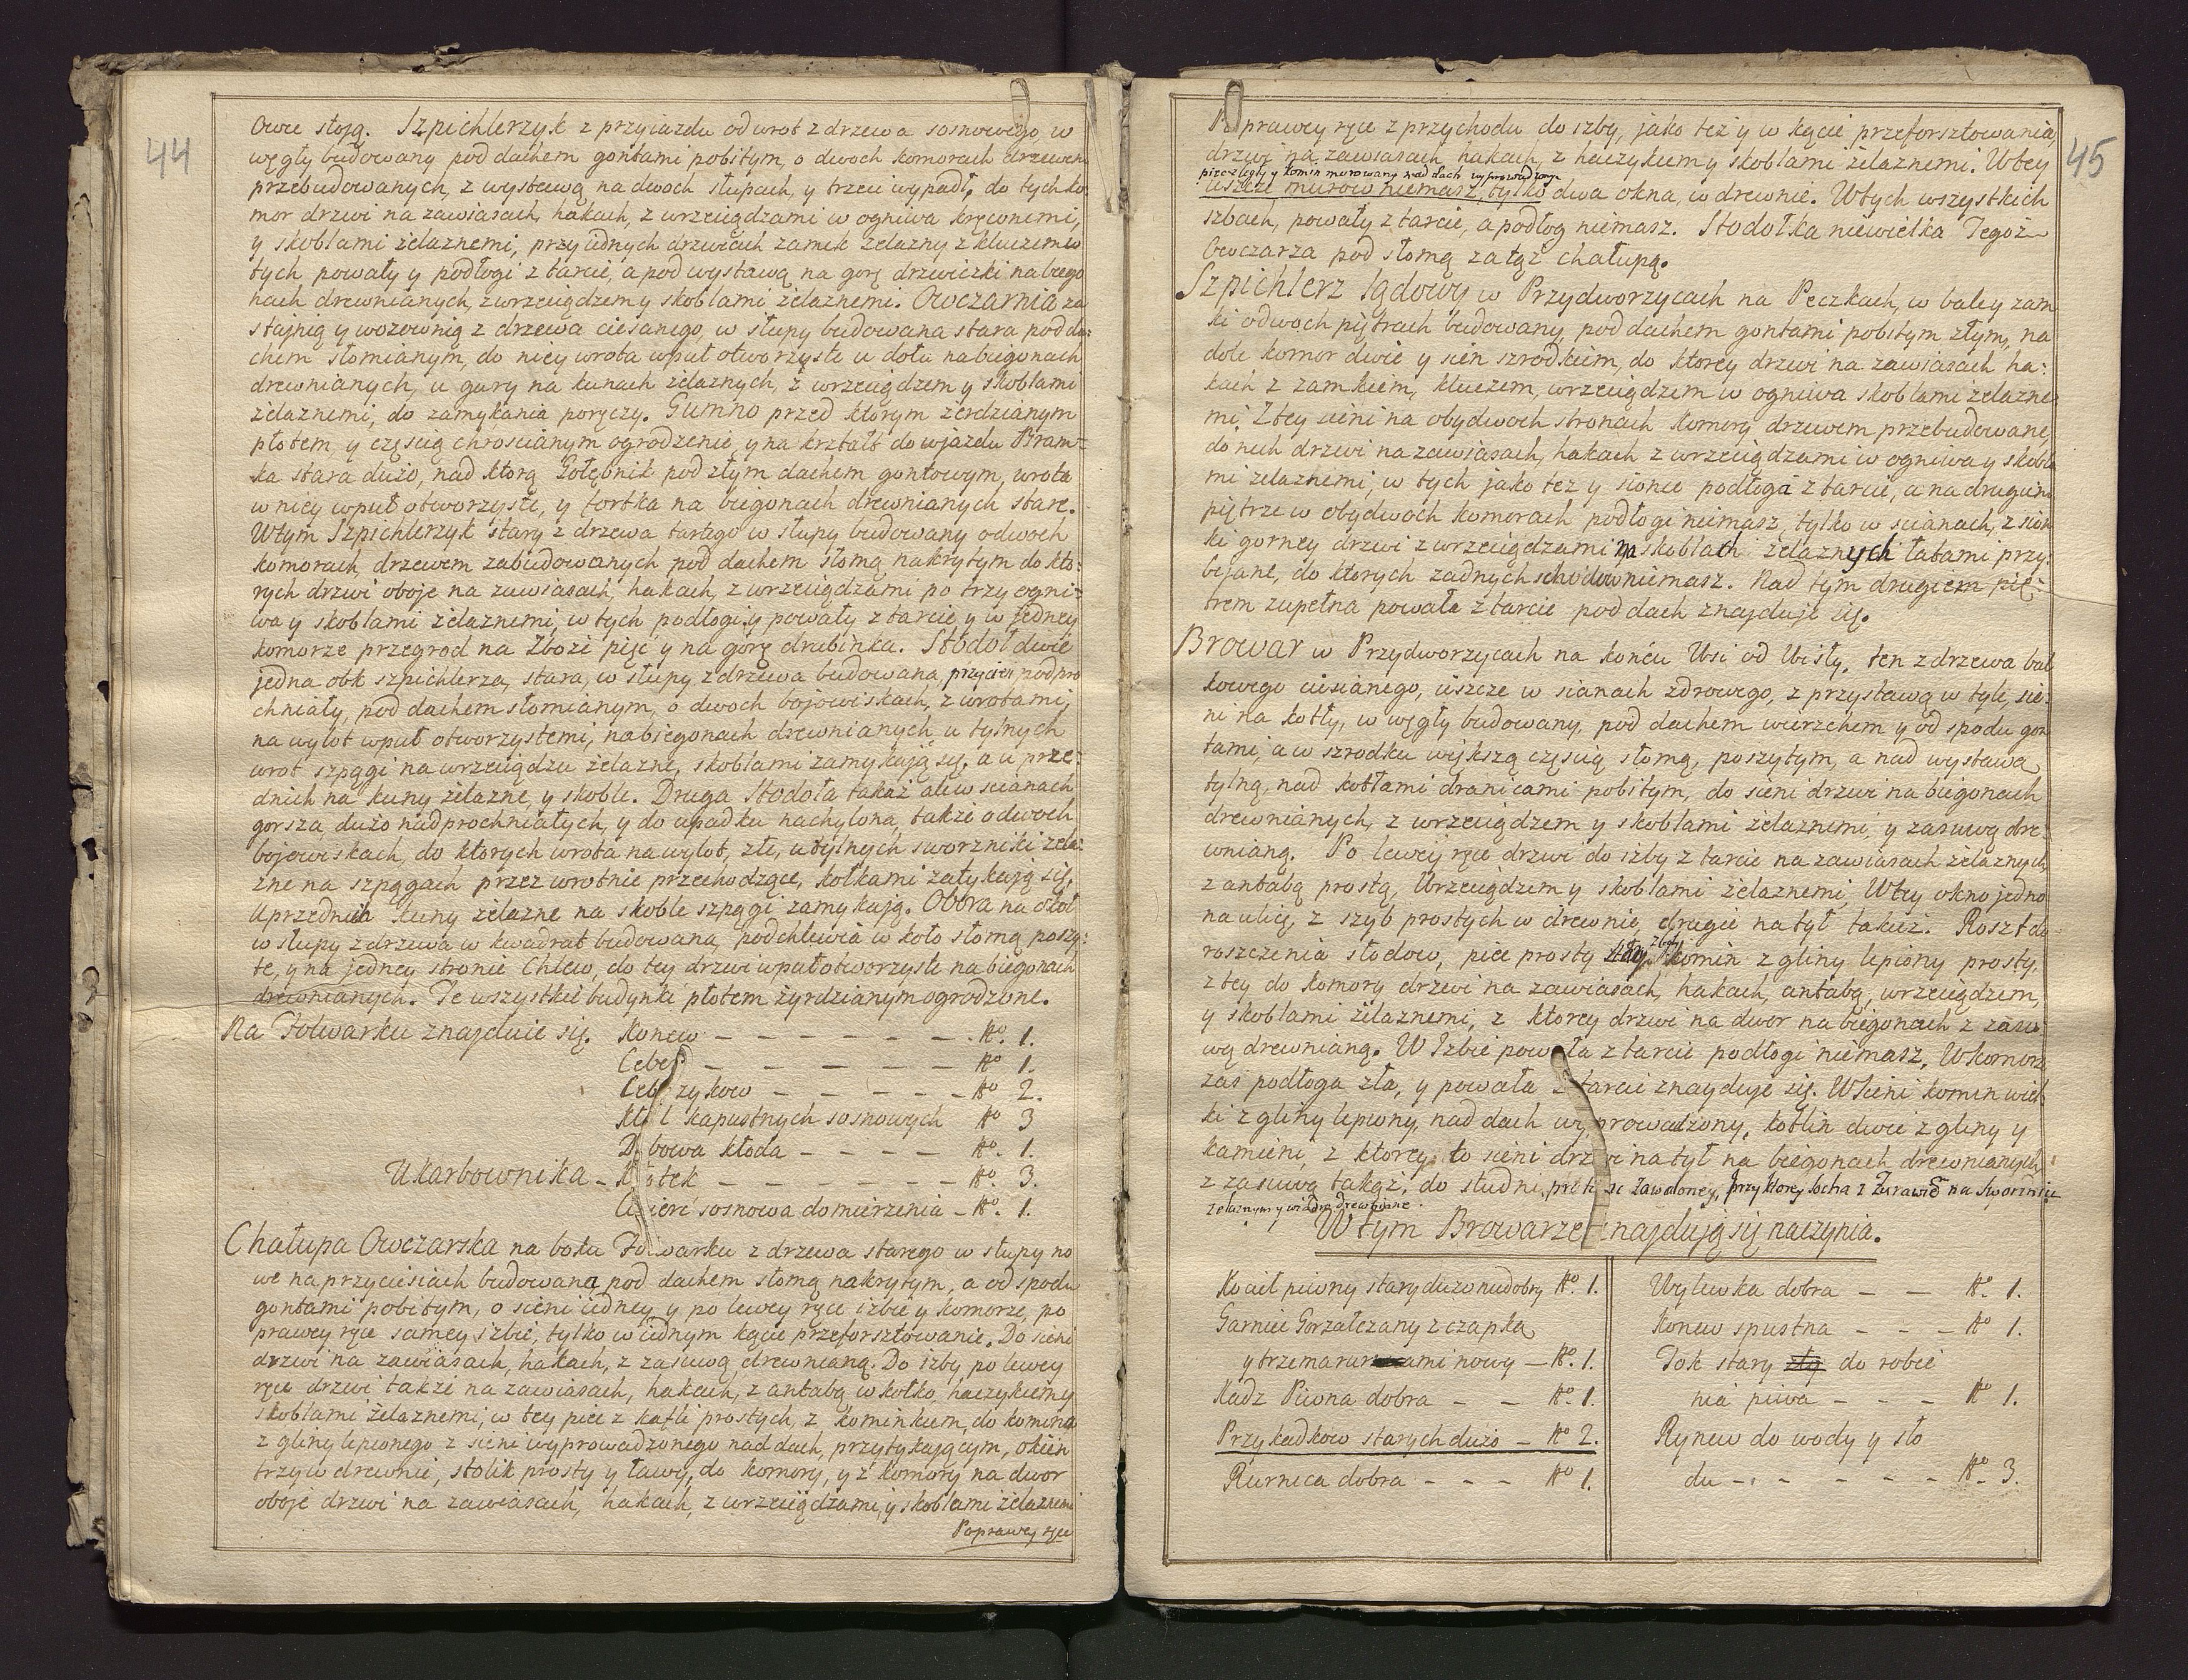 44
Owce stoją. Szpichlerzyk z przyiazdu od wrot z drzewa sosnowego, w
węgły budowany pod dachem gontami pobitym, o dwoch komorach drzewem
przebudowanych, z wystawą na dwoch słupach, y trzeci wypadł, do tych ko
mor drzwi na zawiasach, hakach, z wrzeciądzami w ogniwa kręconemi,
y skoblami żelaznemi, przy iednych drzwiach zamek żelazny z kluczem w
tych powały y podłogi z tarcic, a pod wystawą na gorę drzwiczki na biego
nach drewnianych, z wrzeciądzem y skoblami żelaznemi. Owczarnia za
stajnią y wozownią z drzewa ciesanego, w słupy budowana stara pod da:
chem słomianym, do niey wrota wpuł otworzyste u dołu na biegonach
drewnianych, u gury na kunach żelaznych, z wrzeciądzem y skoblami
żelaznemi, do zamykania poręczy. Gumno przed ktorym żerdzianym
płotem, y częscią chroscianym ogrodzenie, y na kształt do wjazdu Bram-
ka stara dużo, nad ktorą Gołębnik pod złym dachem gontowym, wrota
w niey wpuł otworzyste, y fortka na biegonach drewnianych stare.
Wtym Szpichlerzyk stary z drzewa tartego w słupy budowany o dwoch
komorach, drzewem zabudowanych pod dachem słomą nakrytym do kto:
rych drzwi oboje na zawiasach, hakach, z wrzeciądzami po trzy ogni:
wa y skoblami żelaznemi, w tych podłogi y powały z tarcic, y w jedney
komorze przegrod na Zboże pięć y na gorę drabinka. Stodoł dwie
jedna obk szpichlerza, stara, w słupy z drzewa budowana, przyciesi podpro
chniały, pod dachem słomianym, o dwoch bojowiskach, z wrotami,
na wylot wpuł otworzystemi, na biegonach drewnianych, u tylnych
wrot szpągi na wrzeciądzu żelazne, skoblami zamykają się, a u prze:
dnich na kuny żelazne, y skoble. Druga Stodoła takaż ale w scianach
gorsza dużo nadprochniałych, y do upadku nachylona, także o dwoch
bojowiskach, do ktorych wrota na wylot, złe, u tylnych sworzniki żela:
zne na szpągach przez wrotnie przechodzące, kołkami zatykają się,
Uprzednich kuny żelazne na skoble szpągi zamykają. Obora na
w słupy z drzewa w kwadrat budowana, podchlewia w koło słomą poszy:
te, y na jedney stronie Chlew, do tey drzwi wpuł otworzyste na biegonach
drewnianych. Te wszystkie budynki płotem żyrdzianym ogrodzone.
Na Folwarku znajduie się. Konew – – – – – – – No. 1.
Ceber – – – – – No 1.
Cebrzykow – – – – – No 2.
kapustnych sosnowych No 3
Dębowa kłoda – – – – No. 1.
Ukarbownika – – – – – – – No. 3.
Cwierć sosnowa do mierzenia – No. 1.
Chałupa Owczarska na boku Folwarku z drzewa starego w słupy no
we na przyciesiach budowana, pod dachem słomą nakrytym, a od spodu
gontami pobitym, o sieni iedney, y po lewey ręce izbie y komorze, po
prawey ręce samey izbie, tylko w iednym kącie przeforsztowanie. Do sieni
drzwi na zawiasach, hakach, z zasuwą drewnianą. Do izby po lewey
ręce drzwi także na zawiasach, hakach, z antabą w kołko, haczykiem y
skoblami żelaznemi, w tey piec z kafli prostych, z kominkiem, do komina
z gliny lepionego z sieni wyprowadzonego nad dach, przytykającym, okien
trzy w drewnie, stolik prosty y ławy, do komory, y z komory na dwor
oboje drzwi na zawiasach, hakach, z wrzeciądzami, y skoblami żelaznemi
Poprawey ręce
45
Poprawey ręce z przychodu do izby, jako też y w kącie przeforsztowania,
drzwi na zawiasach, hakach, z haczykiem y skoblami żelaznemi. Wtey
piec z cegły y komin murowany nad dach wyprowadzony
ieszcze murow niemasz, tylko dwa okna, w drewnie. Wtych wszystkich
izbach, powały z tarcic, a podłog niemasz. Stodołka niewielka Tegoż
Owczarza pod słomą za tąż chałupą.
Szpichlerz Iądowy w Przydworzycach na Peczkach, w bale y zam
ki o dwoch piętrach budowany, pod dachem gontami pobitym złym, na
dole komor dwie y sien szrodkiem, do ktorey drzwi na zawiasach ha:
kach z zamkiem, kluczem, wrzeciądzem w ogniwa skoblami żelazne
mi. Z tey sieni na obydwoch stronach komory drzewem przebudowane,
do nich drzwi na zawiasach, hakach z wrzeciądzami w ogniwa y skobla
mi żelaznemi, w tych jako też y sionce podłoga z tarcic, a na drugim
piętrze w obydwoch komorach podłogi niemasz, tylko w scianach, z sion
ki gorney drzwi z wrzeciądzami na skoblach żelaznych łatami przy
bijane, do ktorych żadnych schodow niemasz. Nad tym drugiem pię:
trem zupełna powała z tarcic pod dach znajduje się.
Browar w Przydworzycach na końcu Wsi od Wisły, ten z drzewa bal
kowego ciesianego, ieszcze w scianach zdrowego, z przystawą w tyle, sie:
ni na kotły, w węgły budowany, pod dachem wierzchem y od spodu gon
tami, a w szrodku większą częscią słomą, poszytym, a nad wystawą
tylną, nad kotłami dranicami pobitym, do sieni drzwi na biegonach
drewnianych, z wrzeciądzem y skoblami żelaznemi, y zasuwą dre:
wnianą. Po lewey ręce drzwi do izby z tarcic na zawiasach żelaznych,
z antabą prostą, Wrzeciądzem y skoblami żelaznemi, Wtey okno jedno
na ulicę, z szyb prostych w drewnie, drugie na tył takież. Roszt do
roszczenia słodow, piec prosty zły komin z gliny lepiony prosty,
z tey do komory drzwi na zawiasach, hakach, antabą, wrzeciądzem,
y skoblami żelaznemi, z ktorey drzwi na dwor na biegonach z zasu
wą drewnianą. W Izbie powała z tarcic podłogi niemasz, W komorze
zaś podłoga zła, y powała z tarcic znayduje się. W Sieni komin wiel
ki z gliny lepiony, nad dach wyprowadzony, kotlin dwie z gliny y
kamieni, z ktorey to sieni drzwi na tył na biegonach drewnianych
z zasuwą takąż, do studni zawaloney, przy ktorey socha z Żurawiem na sworzniu
żelaznym y wiadro drewniane.
Wtym Browarze znajdują się naczynia.
Kocieł piwny stary dużo niedobry No. 1.
Garniec Gorzałczany z czapką
y trzema rurami nowy – No. 1.
Kadz Piwna dobra – – No. 1.
Przykadkow starych dużo – No 2.
Rurnica dobra – – – No 1.
Wylewka dobra – – No. 1.
Konew spustna – – – No 1.
Tok stary zły do robie
nia piwa – – – No 1.
Rynew do wody y sło
du – – – – – – No. 3.